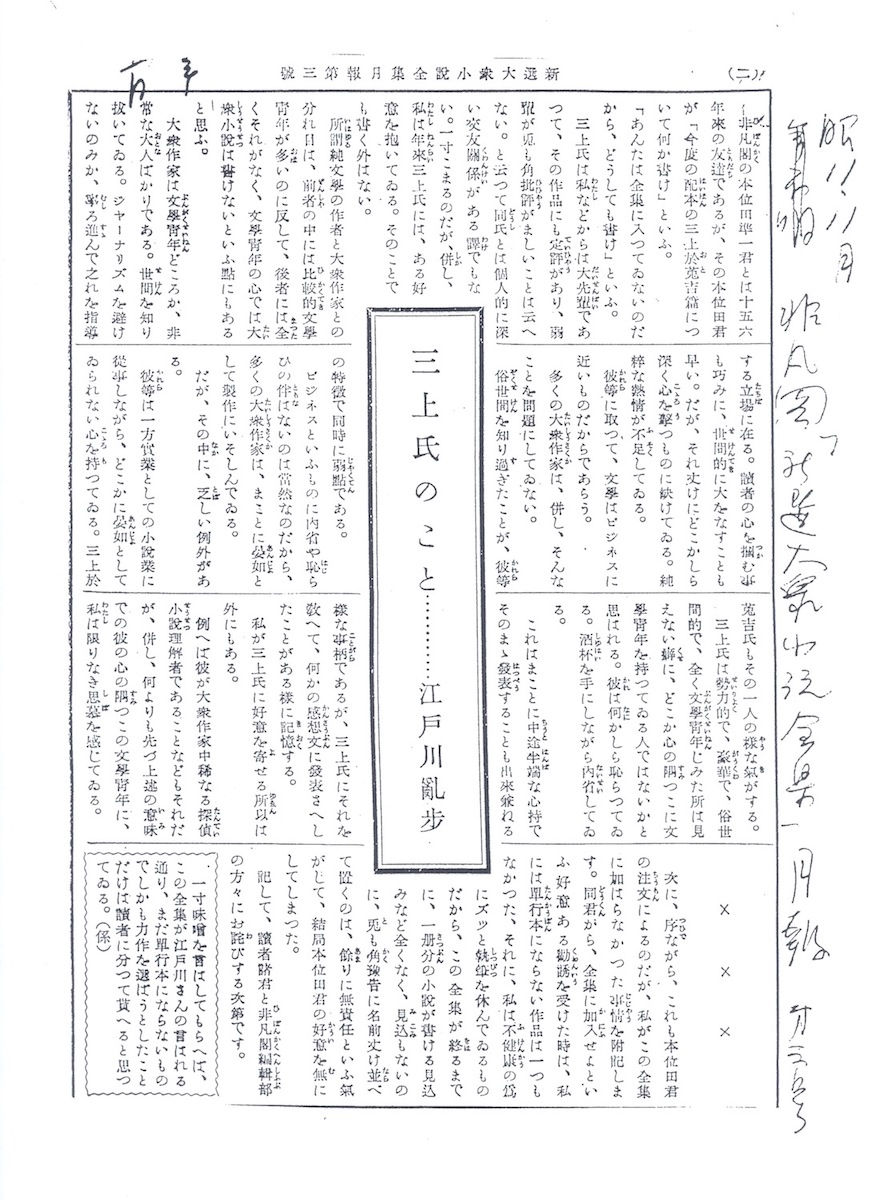 (二)
新選大衆小說全集月報第三號
非凡閣の本位田準一君とは十五六
年來の友達であるが、その本位田君
が「今度の配本の三上於菟吉篇につ
いて何か書け」といふ。
「あんたは全集に入つてゐないのだ
から、どうしても書け」といふ。
三上氏は私などからは大先輩であ
つて、その作品にも定評があり、弱
輩が兎も角批評がましいことは云へ
ない。と云つて同氏とは個人的に深
い交友關係がある譯でもな
い。一寸こまるのだが、併し、
私は年來三上氏には、ある好
意を抱いてゐる。そのことで
も書く外はない。
所謂純文學の作者と大衆作家との
分れ目は、前者の中には比較的文學
靑年が多いのに反して、後者には全
くそれがなく、文學靑年の心では大
衆小說は書けないといふ點にもある
と思ふ。
大衆作家は文學靑年どころか、非
常な大人ばかりである。世間を知り
拔いてゐる。ジャーナリズムを避け
ないのみか、寧ろ進んで之れを指導
する立場に在る。讀者の心を摑む事
も巧みに、世間的に大をなすことも
早い。だが、それ丈けにどこかしら
深く心を擊つものに缺けてゐる。純
粹な熱情が不足してゐる。
彼等に取つて、文學はビジネスに
近いものだからであらう。
多くの大衆作家は、併し、そんな
ことを問題にしてゐない。
俗世間を知り過ぎたことが、彼等
三上氏のこと…………江戶川亂步
の特徵で同時に弱點である。
ビジネスといふものに內省や恥ら
ひの伴はないのは當然なのだから、
多くの大衆作家は、まことに晏如と
して製作にいそしんでゐる。
だが、その中に、乏しい例外があ
る。
彼等は一方實業としての小說業に
從事しながら、どこかに晏如として
ゐられない心を持つてゐる。三上於
菟吉氏もその一人の樣な氣がする。
三上氏は勢力的で、豪華で、俗世
間的で、全く文學靑年じみた所は見
えない癖に、どこか心の隅つこに文
學靑年を持つてゐる人ではないかと
思はれる。彼は何かしら恥らつてゐ
る。酒杯を手にしながら內省してゐ
る。
これはまことに中途半端な心持で
そのまゝ發表することも出來兼ねる
樣な事柄であるが、三上氏はそれを
敎へて、何かの感想文に發表さへし
たことがある樣に記憶する。
私が三上氏に好意を寄せる所以は
外にもある。
例へば彼が大衆作家中稀なる探偵
小說理解者であることなどもそれだ
が、併し、何よりも先づ上述の意味
での彼の心の隅つこの文學靑年に、
私は限りなき思慕を感じてゐる。
× × ×
次に、序ながら、これも本位田君
の注文によるのだが、私がこの全集
に加はらなかつた事情を附記しま
す。同君から、全集に加入せよとい
ふ好意ある勸誘を受けた時は、私
には單行本にならない作品は一つも
なかつた、それに、私は不健康の爲
にズッと執筆を休んでゐるもの
だから、この全集が終るまで
に、一册分の小說が書ける見込
みなど全くなく、見込もないの
に、兎も角豫吿に名前丈け並べ
て置くのは、餘りに無責任といふ氣
がして、結局本位田君の好意を無に
してしまつた。
記して、讀者諸君と非凡閣編輯部
の方々にお詫びする次第です。
一寸味噌を言はしてもらへば、
この全集が江戶川さんの言はれる
通り、まだ單行本にならないもの
でしかも力作を選ばうとしたこと
だけは讀者に分つて貰へると思つ
てゐる。(係)